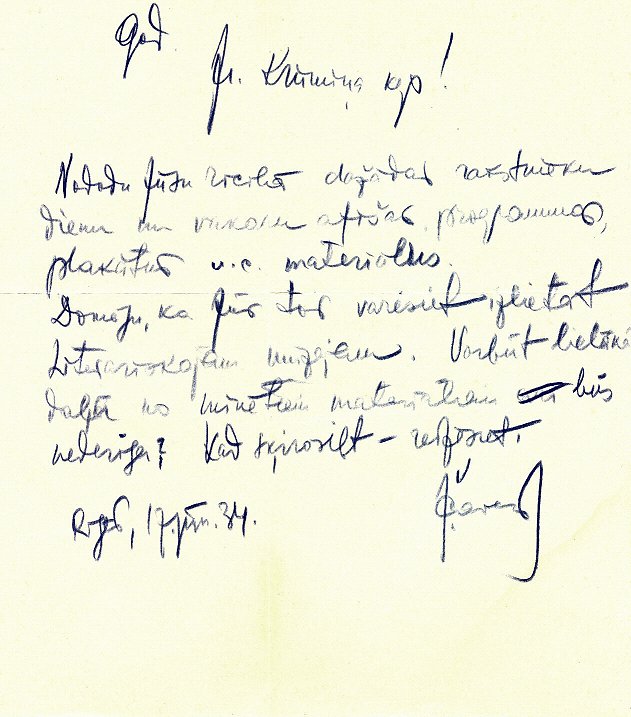 God.
Fr. Krūmiņa kgo!
Nododu Jūsu rīcībā dažādas rakstnieku
dienu un vakaru afišas, programmas,
plakātus u.c. materiālus.
Domāju, ka Jūs tos varēsiet izlietot
Literāriskajam muzejam. Varbūt lielākā
daļa no minētiem materiāliem būs
nederīga? Kad šķirosiet –
Rīgā, 17.jūn. 34.